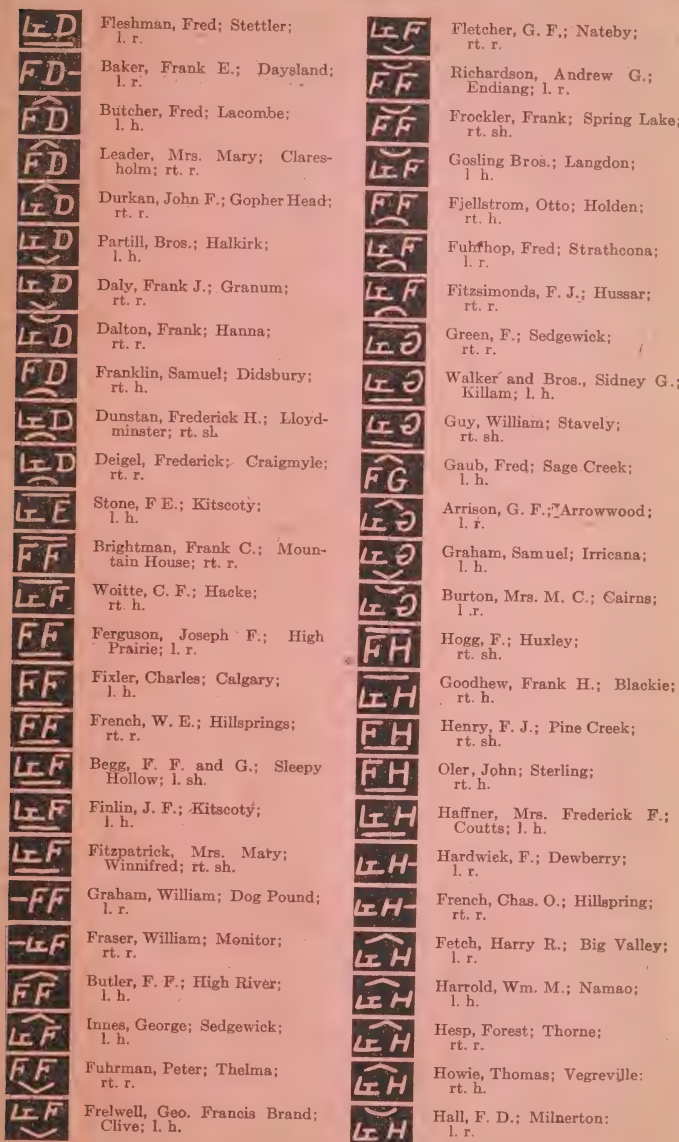 Fleshman, Fred; Stettler;
l. r.
Baker, Frank E.; Daysland;
l. r.
Butcher, Fred; Lacombe;
l. h.
Leader, Mrs. Mary; Clares-
holm; rt. r.
Durkan, John F.; Gopher Head;
rt. r.
Partill, Bros.; Halkirk;
l. h.
Daly, Frank J.; Granum;
rt. r.
Dalton, Frank; Hanna;
rt. r.
Franklin, Samuel; Didsbury;
rt. h.
Dunstan, Frederick H.; Lloyd-
minster; rt. sh
Deigel, Frederick; Craigmyle;
rt. r.
Stone, F E.; Kitscoty;
l. h.
Brightman, Frank C.; Moun-
tain House; rt. r.
Woitte, C. F.; Hacke;
rt. h.
Ferguson, Joseph F.; High
Prairie; l. r.
Fixler, Charles; Calgary;
l. h.
French, W. E.; Hillsprings;
rt. r.
Begg, F. F. and G.; Sleepy
Hollow; l. sh.
Finlin, J. F.; Kitscoty;
l. h.
Fitzpatrick, Mrs. Mary;
Winnifred; rt. sh.
Graham, William; Dog Pound;
l. r.
Fraser, William; Monitor;
rt. r.
Butler, F. F.; High River;
l. h.
Innes, George; Sedgewick;
l. h.
Fuhrman, Peter; Thelma;
rt. r.
Frelwell, Geo. Francis Brand;
Clive; l. h.
Fletcher, G. F.; Nateby;
rt. r.
Richardson, Andrew G.;
Endiang; l. r.
Frockler, Frank; Spring Lake;
rt. sh.
Gosling Bros.; Langdon;
l h.
Fjellstrom, Otto; Holden;
rt. h.
Fuhfhop, Fred; Strathcona;
l. r.
Fitzsimonds, F. J.; Hussar;
rt. r.
Green, F.; Sedgewick;
rt. r.
Walker and Bros., Sidney G.;
Killam; l. h.
Guy, William; Stavely;
rt. sh.
Gaub, Fred; Sage Creek;
l. h.
Arrison, G. F.; Arrowwood;
l. r.
Graham, Samuel; Irricana;
l. h.
Burton, Mrs. M. C.; Cairns;
l .r.
Hogg, F.; Huxley;
rt. sh.
Goodhew, Frank H.; Blackie;
rt. h.
Henry, F. J.; Pine Creek;
rt. sh.
Oler, John; Sterling;
rt. h.
Haffner, Mrs. Frederick F.;
Coutts; l. h.
Hardwiek, F.; Dewberry;
l. r.
French, Chas. O.; Hillspring;
rt. r.
Fetch, Harry R.; Big Valley;
l. r.
Harrold, Wm. M.; Namao;
l. h.
Hesp, Forest; Thorne;
rt. r.
Howie, Thomas; Vegreville:
rt. h.
Hall, F. D.; Milnerton:
l. r.